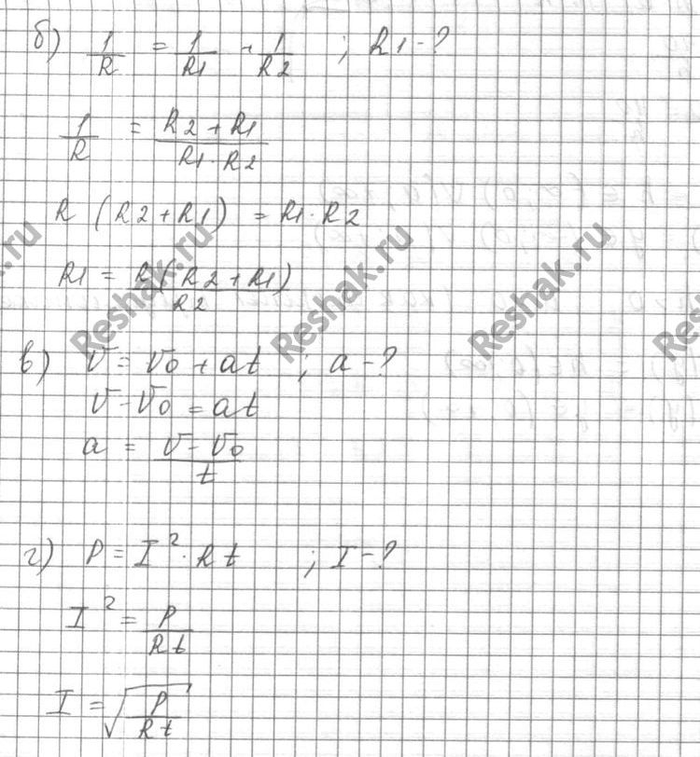 б) 1/R = 1/R1 + 1/R2 ; R1 - ?
1/R = (R2 + R1)/(R1 · R2)
R (R2 + R1) = R1 · R2
R1 = R (R2 + R1)/R2
в) V = V0 + at ; a - ?
V - V0 = at
a = (V - V0)/t
г) P = I² · Rt ; I - ?
I² = P/Rt
I = √(P/Rt)
Reshak.ru
Reshak.ru
Reshak.ru